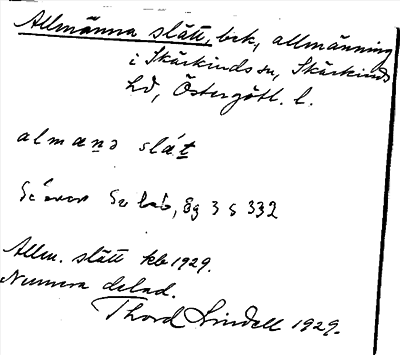 Allmänna slätt, bek, allmänning
i Skärkinds sn, Skärkinds
hd, Östergötl. l.
almaṉə slá´ṯ
Eg 3 s 332
Allm. slätt kb 1929.
Numera delad.
Thord Lindell 1929.